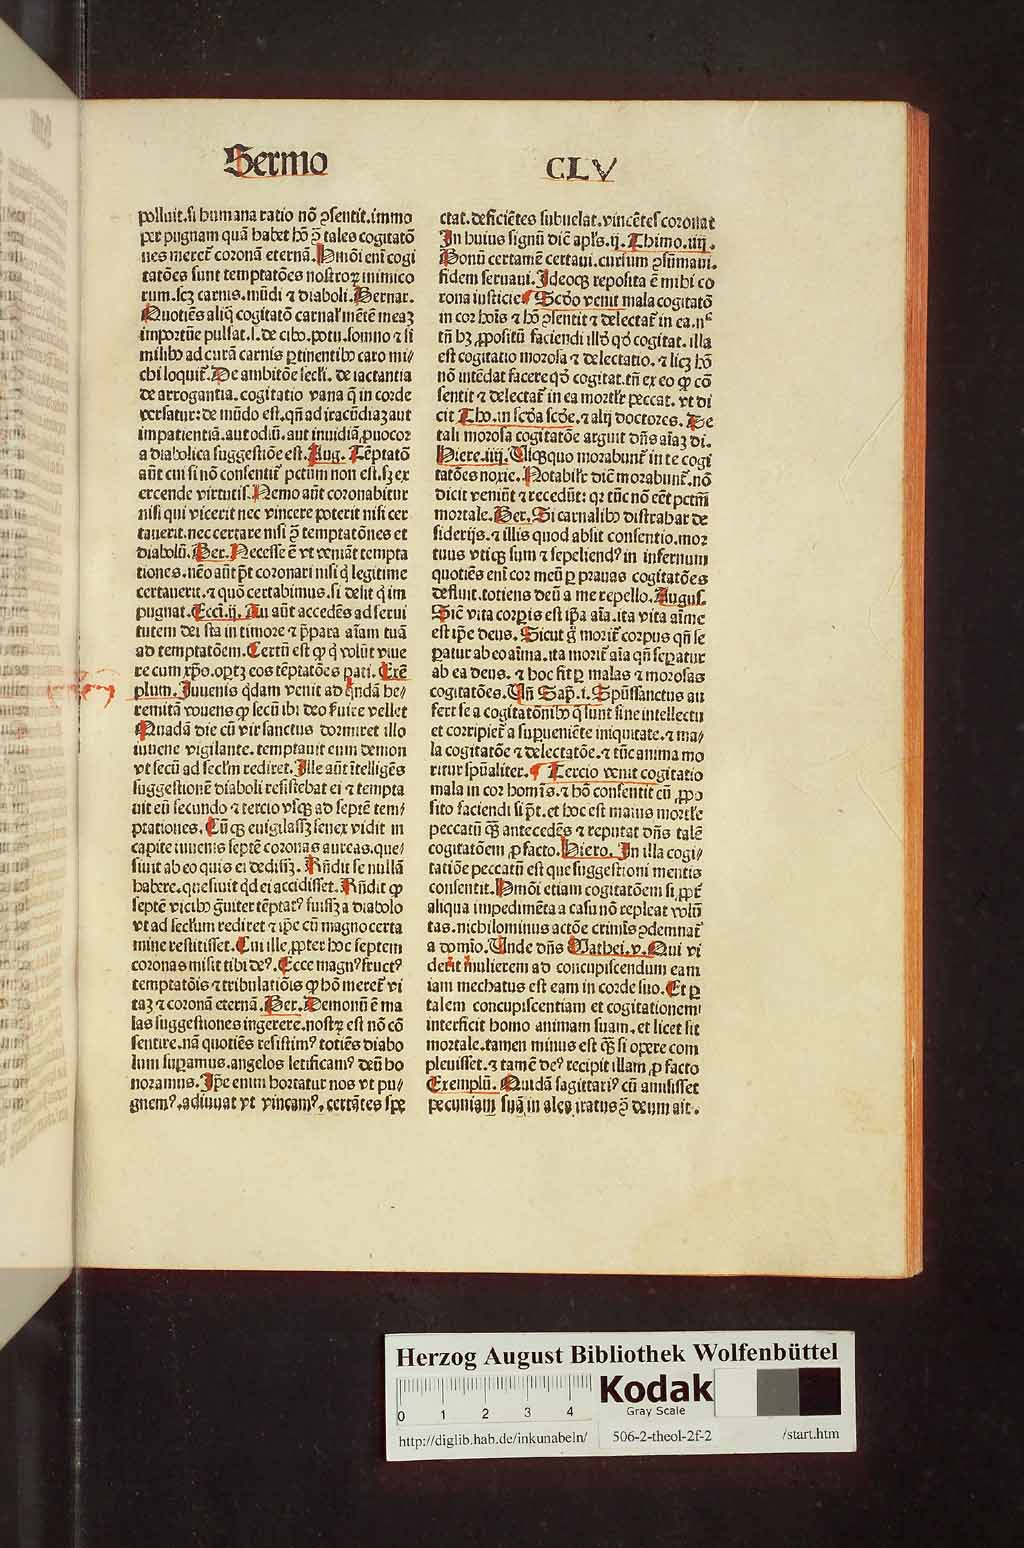 Sermo CLV
polluit. si humana ratio nō ꝯsentit. immo
per pugnam quā habet hō ꝯ̄ tales cogitatō
nes meret᷑ coronā eternā. Hmōi eni cogi
tatōes sunt temptatōes nostroꝝ inimico
rum. scꝫ carnis. mūdi ⁊ diaboli. Bernar.
Quotiēs aliq̄ cogitatō carnaľ mētē meaꝫ
importūe pulsat. s. de cibo. potu. somno ⁊ si
milibꝰ ad curā carnis ꝑtinentibꝰ caro mi/
chi loquit᷑. De ambitōe secľi. de iactantia
de arrogantia. cogitatio vana q̄ in corde
versatur: de mūdo est. qn̄ ad iracūdiaꝫ aut
impatientiā. aut odiū. aut inuidiā ꝓuocor
a diabolica suggestiōe est. Aug. Tēptatō
aūt cui si nō consentit᷑ pctūm non est. sꝫ ex
ercende virtutis. Nemo aūt coronabitur
nisi qui vicerit nec vincere poterit nisi cer
tauerit. nec certare nisi ꝯ̄ temptatōnes et
diabolū. Ber. Necesse ē vt veniāt tempta
tiones. nēo aūt pt̄ coronari nisi q̇ legitime
certauerit. ⁊ quō certabimus. si desit q̇ im
pugnat. Ecci. ij. Au aūt accedēs ad serui
tutem dei sta in timore ⁊ p̄para aīam tuā
ad temptatōem. Certū est ꝙ q̇ volūt viue
re cum xp̄o. oꝑtꝫ eos tēptatōes pati. Exē
plum. Iuuenis q̇dam venit ad q̄ndā he/
remitā vouens ꝙ secū ibi deo ẜuire vellet
Quadā die cū vir sanctus dormiret illo
iuuene vigilante. temptauit eum demon
vt secū ad secľm rediret. Ille aūt ītelligēs
suggestionē diaboli resistebat ei ⁊ tempta
uit eū secundo ⁊ tercio vsqꝫ ad septē tem/
ptationes. Cūqꝫ euigilassꝫ senex vidit in
capite iuuenis septē coronas aureas. que/
siuit ab eo quis ei dedissꝫ. Rn̄dit se nullā
habere. quesiuit qd̄ ei accidisset. Rn̄dit ꝙ
septē vicibꝰ g̈uiter tēptatꝰ fuissꝫ a diabolo
vt ad secľum rediret ⁊ ip̄e cū magno certa
mine restitisset. Cui ille, ꝓpter hoc septem
coronas misit tibi deꝰ. Ecce magnꝰ fructꝰ
temptatōis ⁊ tribulatiōis ꝙ hō meret᷑ vi
taꝫ ⁊ coronā eternā. Ber. Demonū ē ma
las suggestiones ingerere. nostꝝ est nō cō
sentire. nā quotiēs resistimꝰ totiēs diabo
lum suꝑamus. angelos letificamꝰ deū ho
noramus. Ip̄e enim hortatur nos vt pu/
gnemꝰ, adiuuat vt vincamꝰ, certātes spe
ctat. deficiētes subleuat. vincētes coronat
In huius signū dic̄ apl's. ij. Thimo. iiij.
Bonū certamē certaui. cursum ꝯsūmaui.
fidem seruaui. Ideoqꝫ reposita ē mihi co
rona iusticie ¶ Scd̄o venit mala cogitatō
in cor hoīs ⁊ hō ꝯsentit ⁊ delectat᷑ in ea. nᶜ
tn̄ hꝫ ꝓpositū faciendi illō qd̄ cogitat. illa
est cogitatio morosa ⁊ delectatio. ⁊ licꝫ hō
nō intēdat facere qd̄ cogitat. tn̄ ex eo ꝙ cō
sentit ⁊ delectat᷑ in ea mortľr peccat. vt di
cit Tho. in scd̄a scd̄e. ⁊ alij doctores. De
tali morosa cogitatōe arguit dn̄s aīaꝫ di.
Hiere. iiij. Vsqꝫquo morabunt᷑ in te cogi
tatōes noxie. Notabilr̄ dic̄ morabunt᷑. nō
dicit veniūt ⁊ recedūt: qꝛ tūc nō eēt pctm̄
mortale. Ber. Si carnalibꝰ distrahar de
siderijs. ⁊ illis quod absit consentio. mor
tuus vtiqꝫ sum ⁊ sepeliendꝰ in infernum
quotiēs eni cor meū ꝑ prauas cogitatōes
defluit. totiens deū a me repello. Augus.
Sic̄ vita corꝑis est ip̄a aīa. ita vita aīme
est ip̄e deus. Sicut g̊ morit᷑ corpus qn̄ se
ꝑatur ab eo aīma. ita morit᷑ aīa qn̄ seꝑatur
ab ea deus. ⁊ hoc fit ꝑ malas ⁊ morosas
cogitatōes. Vn̄ Sap̄. i. Spūssanctus au
fert se a cogitatōnibꝰ q̄ sunt sine intellectu
et corripiet᷑ a suꝑueniēte iniquitate. ⁊ ma/
la cogitatōe ⁊ delectatōe. ⁊ tūc anima mo
ritur spūaliter. ¶ Tercio venit cogitatio
mala in cor homīs. ⁊ hō consentit cū ꝓpo
sito faciendi si pt̄. et hoc est maius mortľe
peccatū qꝫ̄ antecedēs ⁊ reputat dn̄s talē
cogitatōem ꝓ facto. Hiero. In illa cogi/
tatiōe peccatū est que suggestioni mentis
consentit. Hmōi etiam cogitatōem si ꝓpt᷑
aliqua impedimēta a casu nō repleat volū
tas. nichilominus actōe crimīs ꝯdemnat᷑
a domīo. Unde dn̄s Mathei. v. Qui vi
derit mulierem ad concupiscendum eam
iam mechatus est eam in corde suo. Et ꝑ
talem concupiscentiam et cogitationem
interficit homo animam suam. et licet sit
mortale. tamen minus est qꝫ̄ si opere com
pleuisset. ⁊ tamē deꝰ recipit illam ꝓ facto
Exemplū. Quidā sagittariꝰ cū amisisset
pecuniam suā in alea iratus ꝯ̄ deum ait.
Herzog August Bibliothek Wolfenbüttel
0 1 2 3 4
Kodak
Gray Scale
http://diglib.hab.de/inkunabeln/ 506-2-theol-2f-2 /start.htm